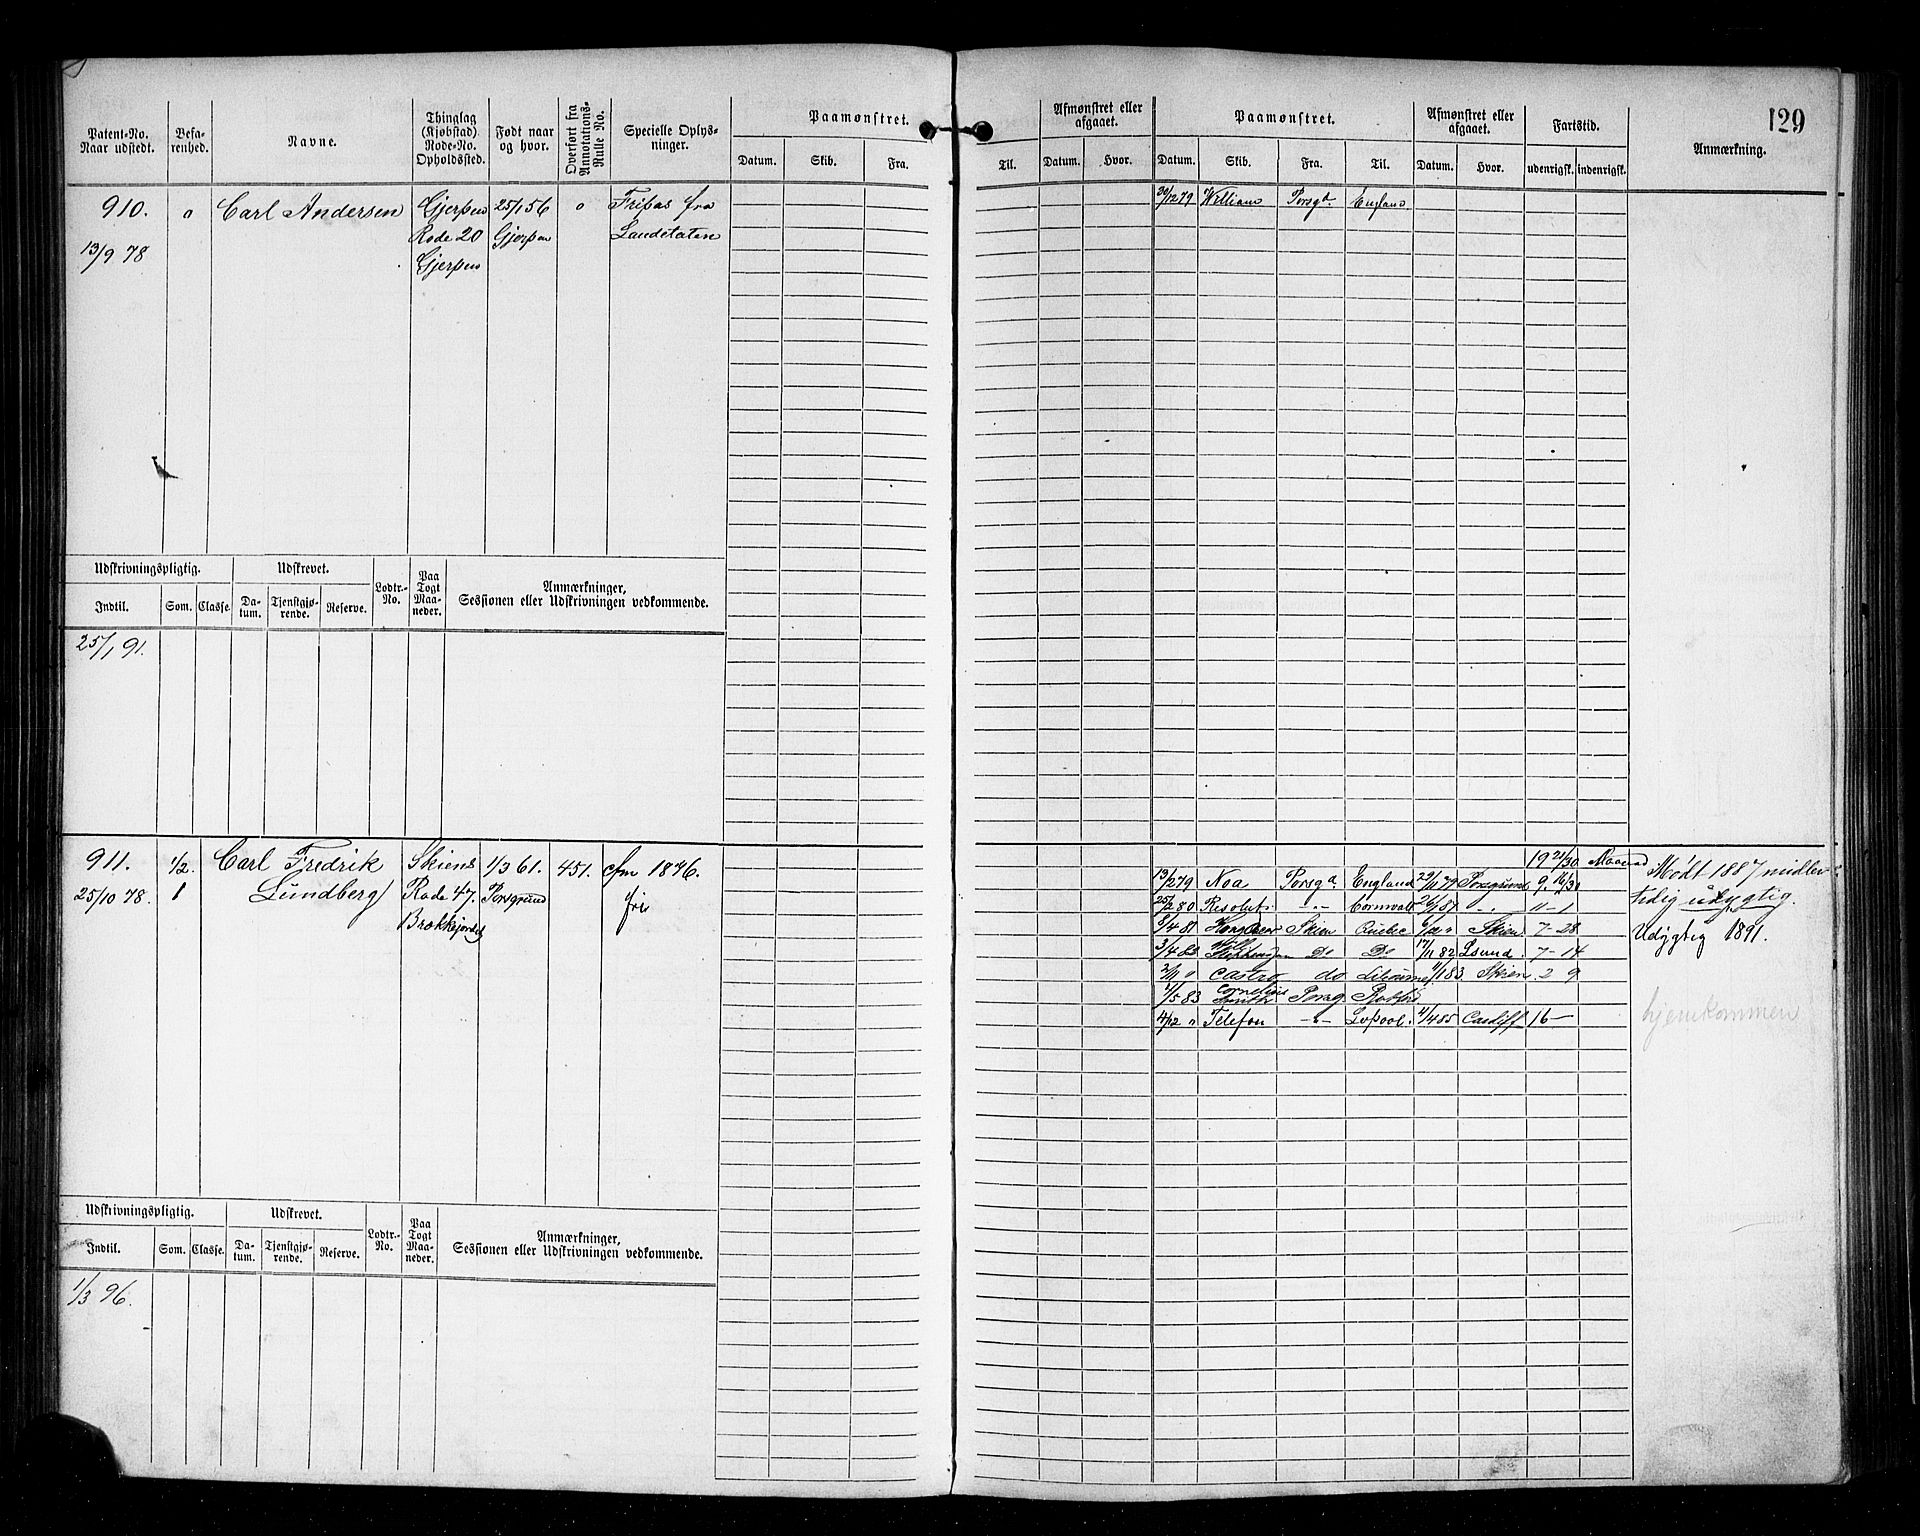 129
Patent-No. Naar udstedt.
Befarenhed.
Navne.
Thinglag (Kjøbstad) Rode-No. Opholdssted.
Født naar og hvor.
Overført fra Annotations-Rulle No.
Specielle Oplysninger.
Paamønstret.
Datum. Skib. Fra. Til.
Afmønstret eller afgaaet.
Datum. Hvor.
Paamønstret.
Datum. Skib. Fra. Til.
Afmønstret eller afgaaet.
Datum. Hvor.
Fartstid.
udenrigsk. indenrigsk.
Anmærkning.
910. o Carl Andersen Gjerpen 25/1 56 o Fripas fra
Rode 20 Gjerpen Landetaten
13/9 78 Gjerpen
30/12 79 William Porsgd. England
Udskrivningspligtig. Udskrevet. Lodtr.-No. Paa Togt Maaneder. Anmærkninger, Sessionen eller Udskrivningen vedkommende.
Indtil. Som. Classe. Datum. Tjenstgjørende. Reserve.
25/1 91.
911. 1/2 Carl Fredrik Skiens 1/3 61. 451. cfm 1876.
25/10 78. 1 Lundberg Rode 47. Porsgrund fri
Brækkejordet
19 21/30 Maaned
13/2 79 Noa Porsgd. England 29/11 79 Porsgrund 9. 16/30
25/2 80 Resolut -"- Cornwall 26/1 81 -"- 11-1
8/4 81 Skien Quebec Skien 7-28
3/4 82 Do Do 17/11 82 Lsund. 7-14
2/11 o Castro do 11/1 83. Skien 2 9
1/5 83 Cornelius Smith Porsg
4/12 " Telefon -"- Lvpool. 11/4 85 Cardiff 16-
Mødt 1887 midler-
tidig udygtig.
Udygtig 1891.
hjemkommen
Udskrivningspligtig. Udskrevet. Lodtr.-No. Paa Togt Maaneder. Anmærkninger, Sessionen eller Udskrivningen vedkommende.
Indtil. Som. Classe. Datum. Tjenstgjørende. Reserve.
1/3 96.